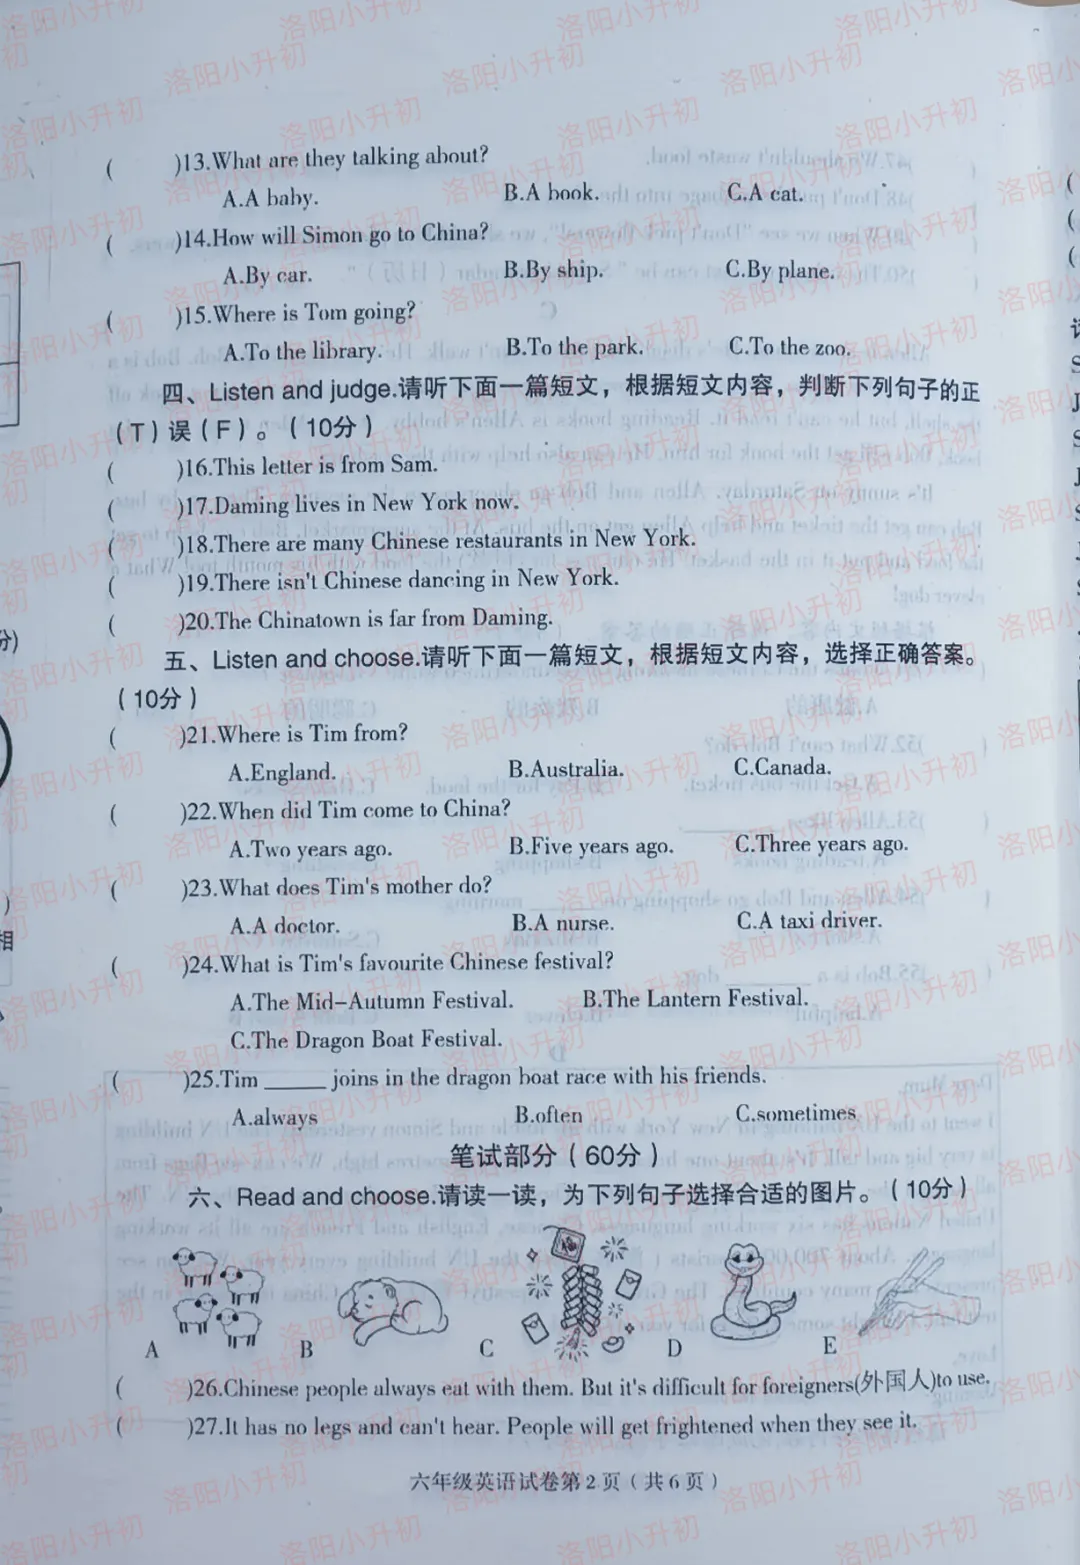 ( )13.What are they talking about?
A.A baby. B.A book. C.A cat.
( )14.How will Simon go to China?
A.By car. B.By ship. C.By plane.
( )15.Where is Tom going?
A.To the library. B.To the park. C.To the zoo.
四、Listen and judge.请听下面一篇短文，根据短文内容，判断下列句子的正
（T）误（F）。（10分）
( )16.This letter is from Sam.
( )17.Daming lives in New York now.
( )18.There are many Chinese restaurants in New York.
( )19.There isn't Chinese dancing in New York.
( )20.The Chinatown is far from Daming.
五、Listen and choose.请听下面一篇短文，根据短文内容，选择正确答案。
（10分）
( )21.Where is Tim from?
A.England. B.Australia. C.Canada.
( )22.When did Tim come to China?
A.Two years ago. B.Five years ago. C.Three years ago.
( )23.What does Tim's mother do?
A.A doctor. B.A nurse. C.A taxi driver.
( )24.What is Tim's favourite Chinese festival?
A.The Mid-Autumn Festival. B.The Lantern Festival.
C.The Dragon Boat Festival.
( )25.Tim ______ joins in the dragon boat race with his friends.
A.always B.often C.sometimes
笔试部分（60分）
六、Read and choose.请读一读，为下列句子选择合适的图片。（10分）
A B C D E
( )26.Chinese people always eat with them. But it's difficult for foreigners(外国人)to use.
( )27.It has no legs and can't hear. People will get frightened when they see it.
六年级英语试卷第2页（共6页）
洛阳小升初